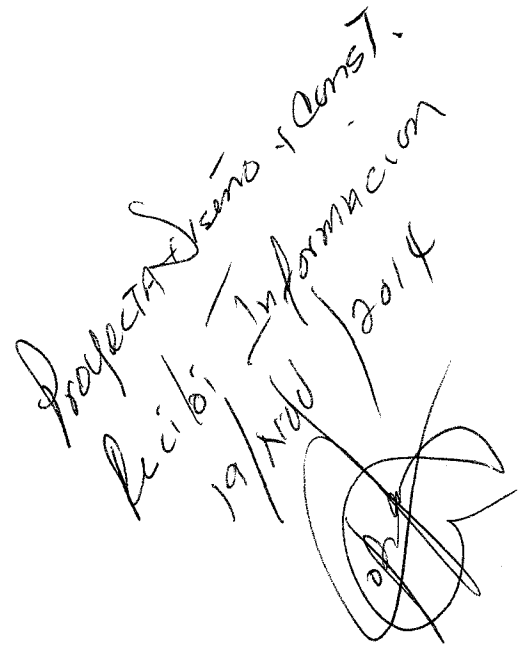 Proyecta Diseño y Const.
Recibí Información
19/Nov/2014